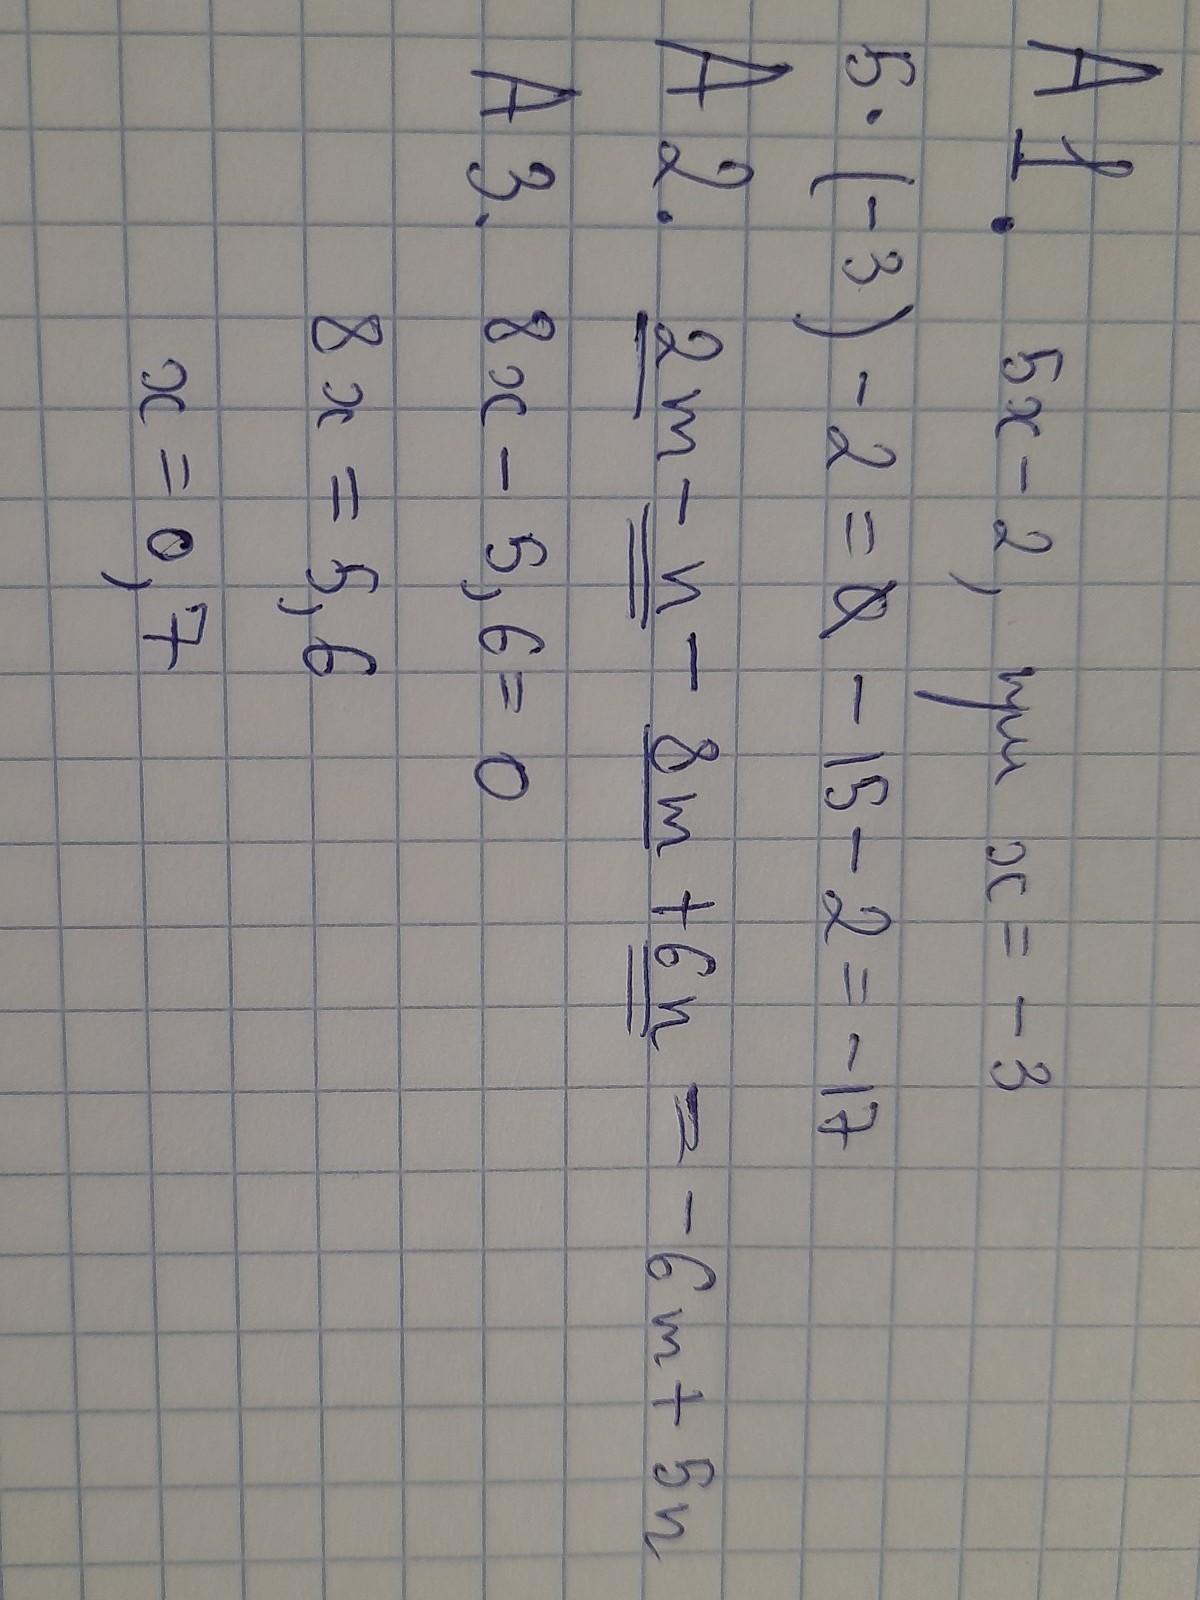 А 1. 5x - 2, при x = -3
5·(-3) - 2 = -15 - 2 = -17
А 2. 2m - n - 8m + 6n = -6m + 5n
А 3. 8x - 5,6 = 0
8x = 5,6
x = 0,7